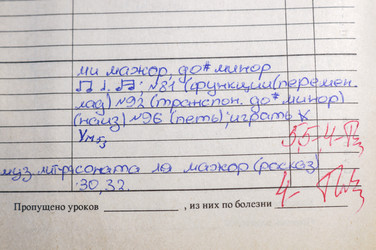 ми мажор, до# минор
♫ ♩. ♫; №81 (функции(перемен.
лад) №92 (транспон. до# минор)
(наиз) №96 (петь); играть х
Ум53 5,5,4-
муз. соната ля мажор (расказ)
30,32. 4-
Пропущено уроков ____________ , из них по болезни ____________ .